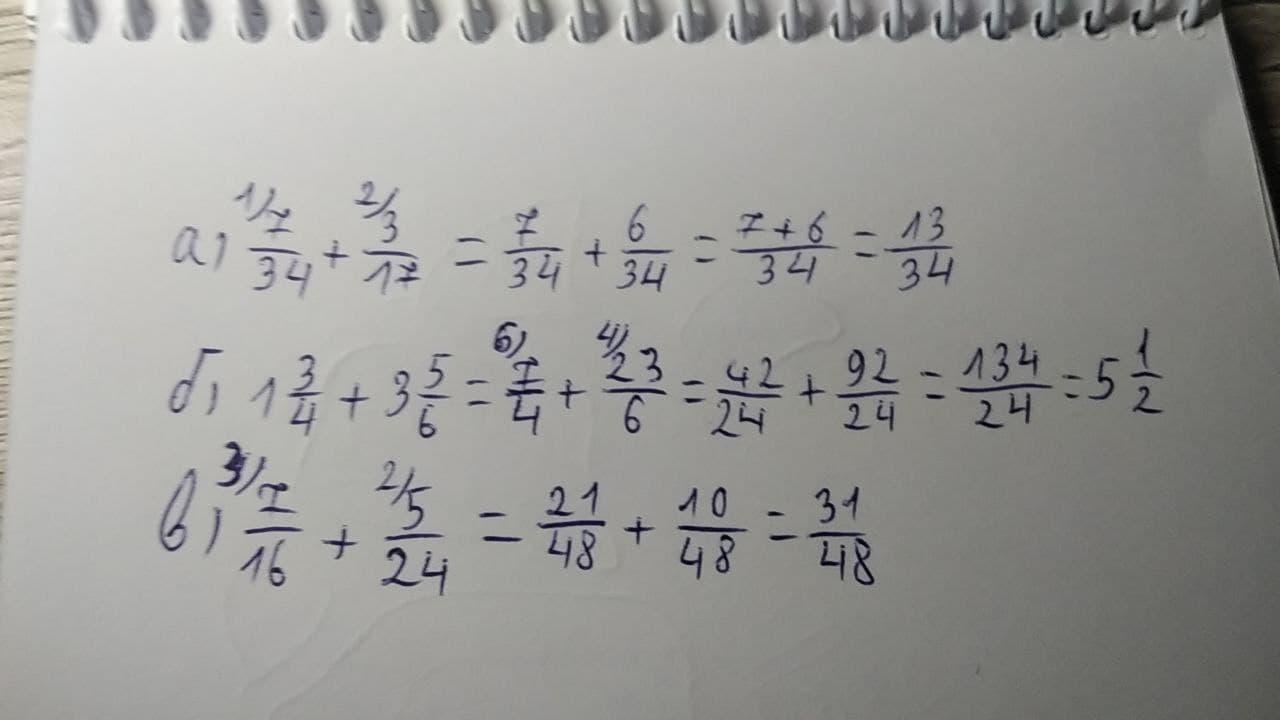 а) 1/ 7/34 + 2/ 3/17 = 7/34 + 6/34 = 7+6/34 = 13/34
б) 1 3/4 + 3 5/6 = 6) 7/4 + 4) 23/6 = 42/24 + 92/24 = 134/24 = 5 1/2
в) 3/ 7/16 + 2/ 5/24 = 21/48 + 10/48 = 31/48